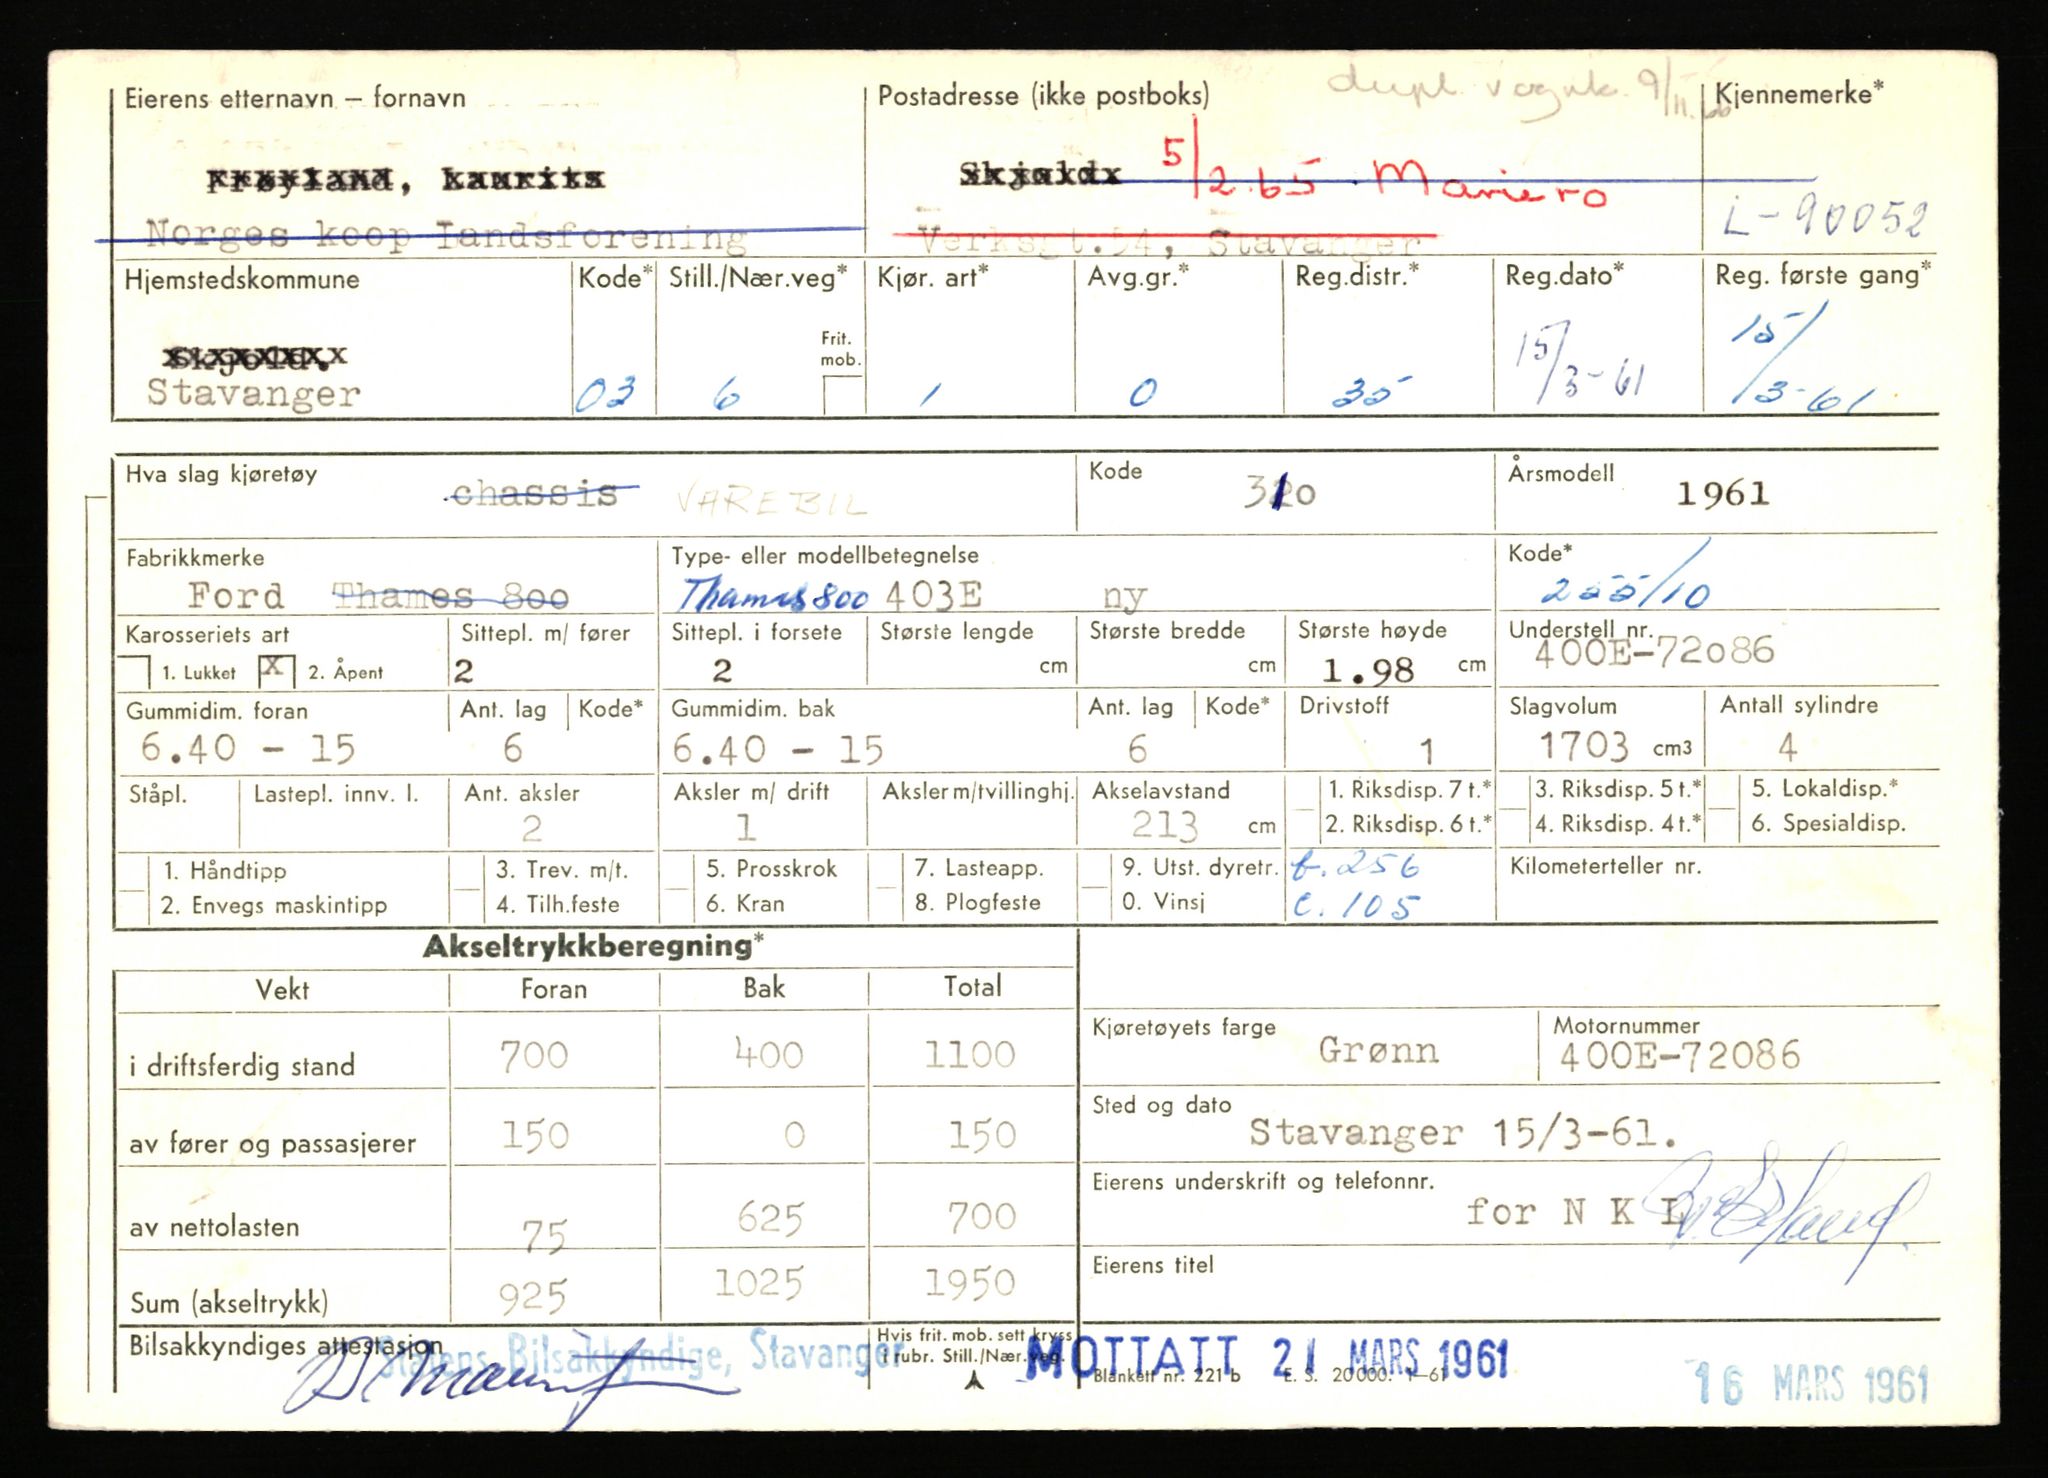 dupl. vognk. 9/11.66
Eierens etternavn – fornavn Postadresse (ikke postboks) Kjennemerke*
Frøyland, Laurits Skjold 5/2.65 Mariero
Norges koop landsforening Verksgt.54, Stavanger L-90052
Hjemstedskommune Kode* Still./Nær.veg* Kjør. art* Avg.gr.* Reg.distr.* Reg.dato* Reg. første gang*
Frit. mob.
Skjold.
Stavanger 03 6 1 0 35 15/3-61 15/3-61
Hva slag kjøretøy chassis VAREBIL Kode 310 Årsmodell 1961
Fabrikkmerke Type- eller modellbetegnelse Kode*
Ford Thames 800 Thames 800 403E ny 255/10
Karosseriets art Sittepl. m/ fører Sittepl. i forsete Største lengde Største bredde Største høyde Understell nr.
1. Lukket X 2. Åpent 2 2 cm cm 1.98 cm 400E-72086
Gummidim. foran Ant. lag Kode* Gummidim. bak Ant. lag Kode* Drivstoff Slagvolum Antall sylindre
6.40 - 15 6 6.40 - 15 6 1 1703 cm3 4
Ståpl. Lastepl. innv. l. Ant. aksler Aksler m/ drift Aksler m/tvillinghj. Akselavstand 1. Riksdisp. 7 t.* 3. Riksdisp. 5 t.* 5. Lokaldisp.*
2 1 213 cm 2. Riksdisp. 6 t.* 4. Riksdisp. 4 t.* 6. Spesialdisp.
1. Håndtipp 3. Trev. m/t. 5. Prosskrok 7. Lasteapp. 9. Utst. dyretr. b. 256 Kilometerteller nr.
2. Envegs maskintipp 4. Tilh.feste 6. Kran 8. Plogfeste 0. Vinsj c. 105
Akseltrykkberegning*
Vekt Foran Bak Total
i driftsferdig stand 700 400 1100
Kjøretøyets farge Grønn Motornummer 400E-72086
av fører og passasjerer 150 0 150
Sted og dato Stavanger 15/3-61.
av nettolasten 75 625 700
Eierens underskrift og telefonnr. for N K L
Sum (akseltrykk) 925 1025 1950
Eierens titel
Bilsakkyndiges attestasjon Statens Bilsakkyndige, Stavanger
Hvis frit. mob. sett kryss
i rubr. Still./Nær.veg.
MOTTATT 21 MARS 1961
Blankett nr. 221 b E. S. 20000. 1–61
16 MARS 1961